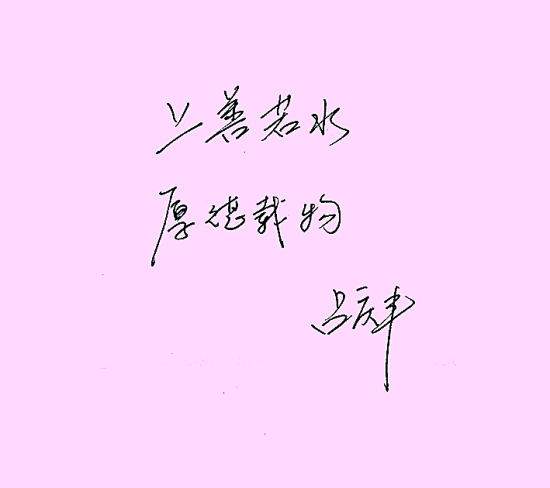 上善若水
厚德载物
吕庆丰